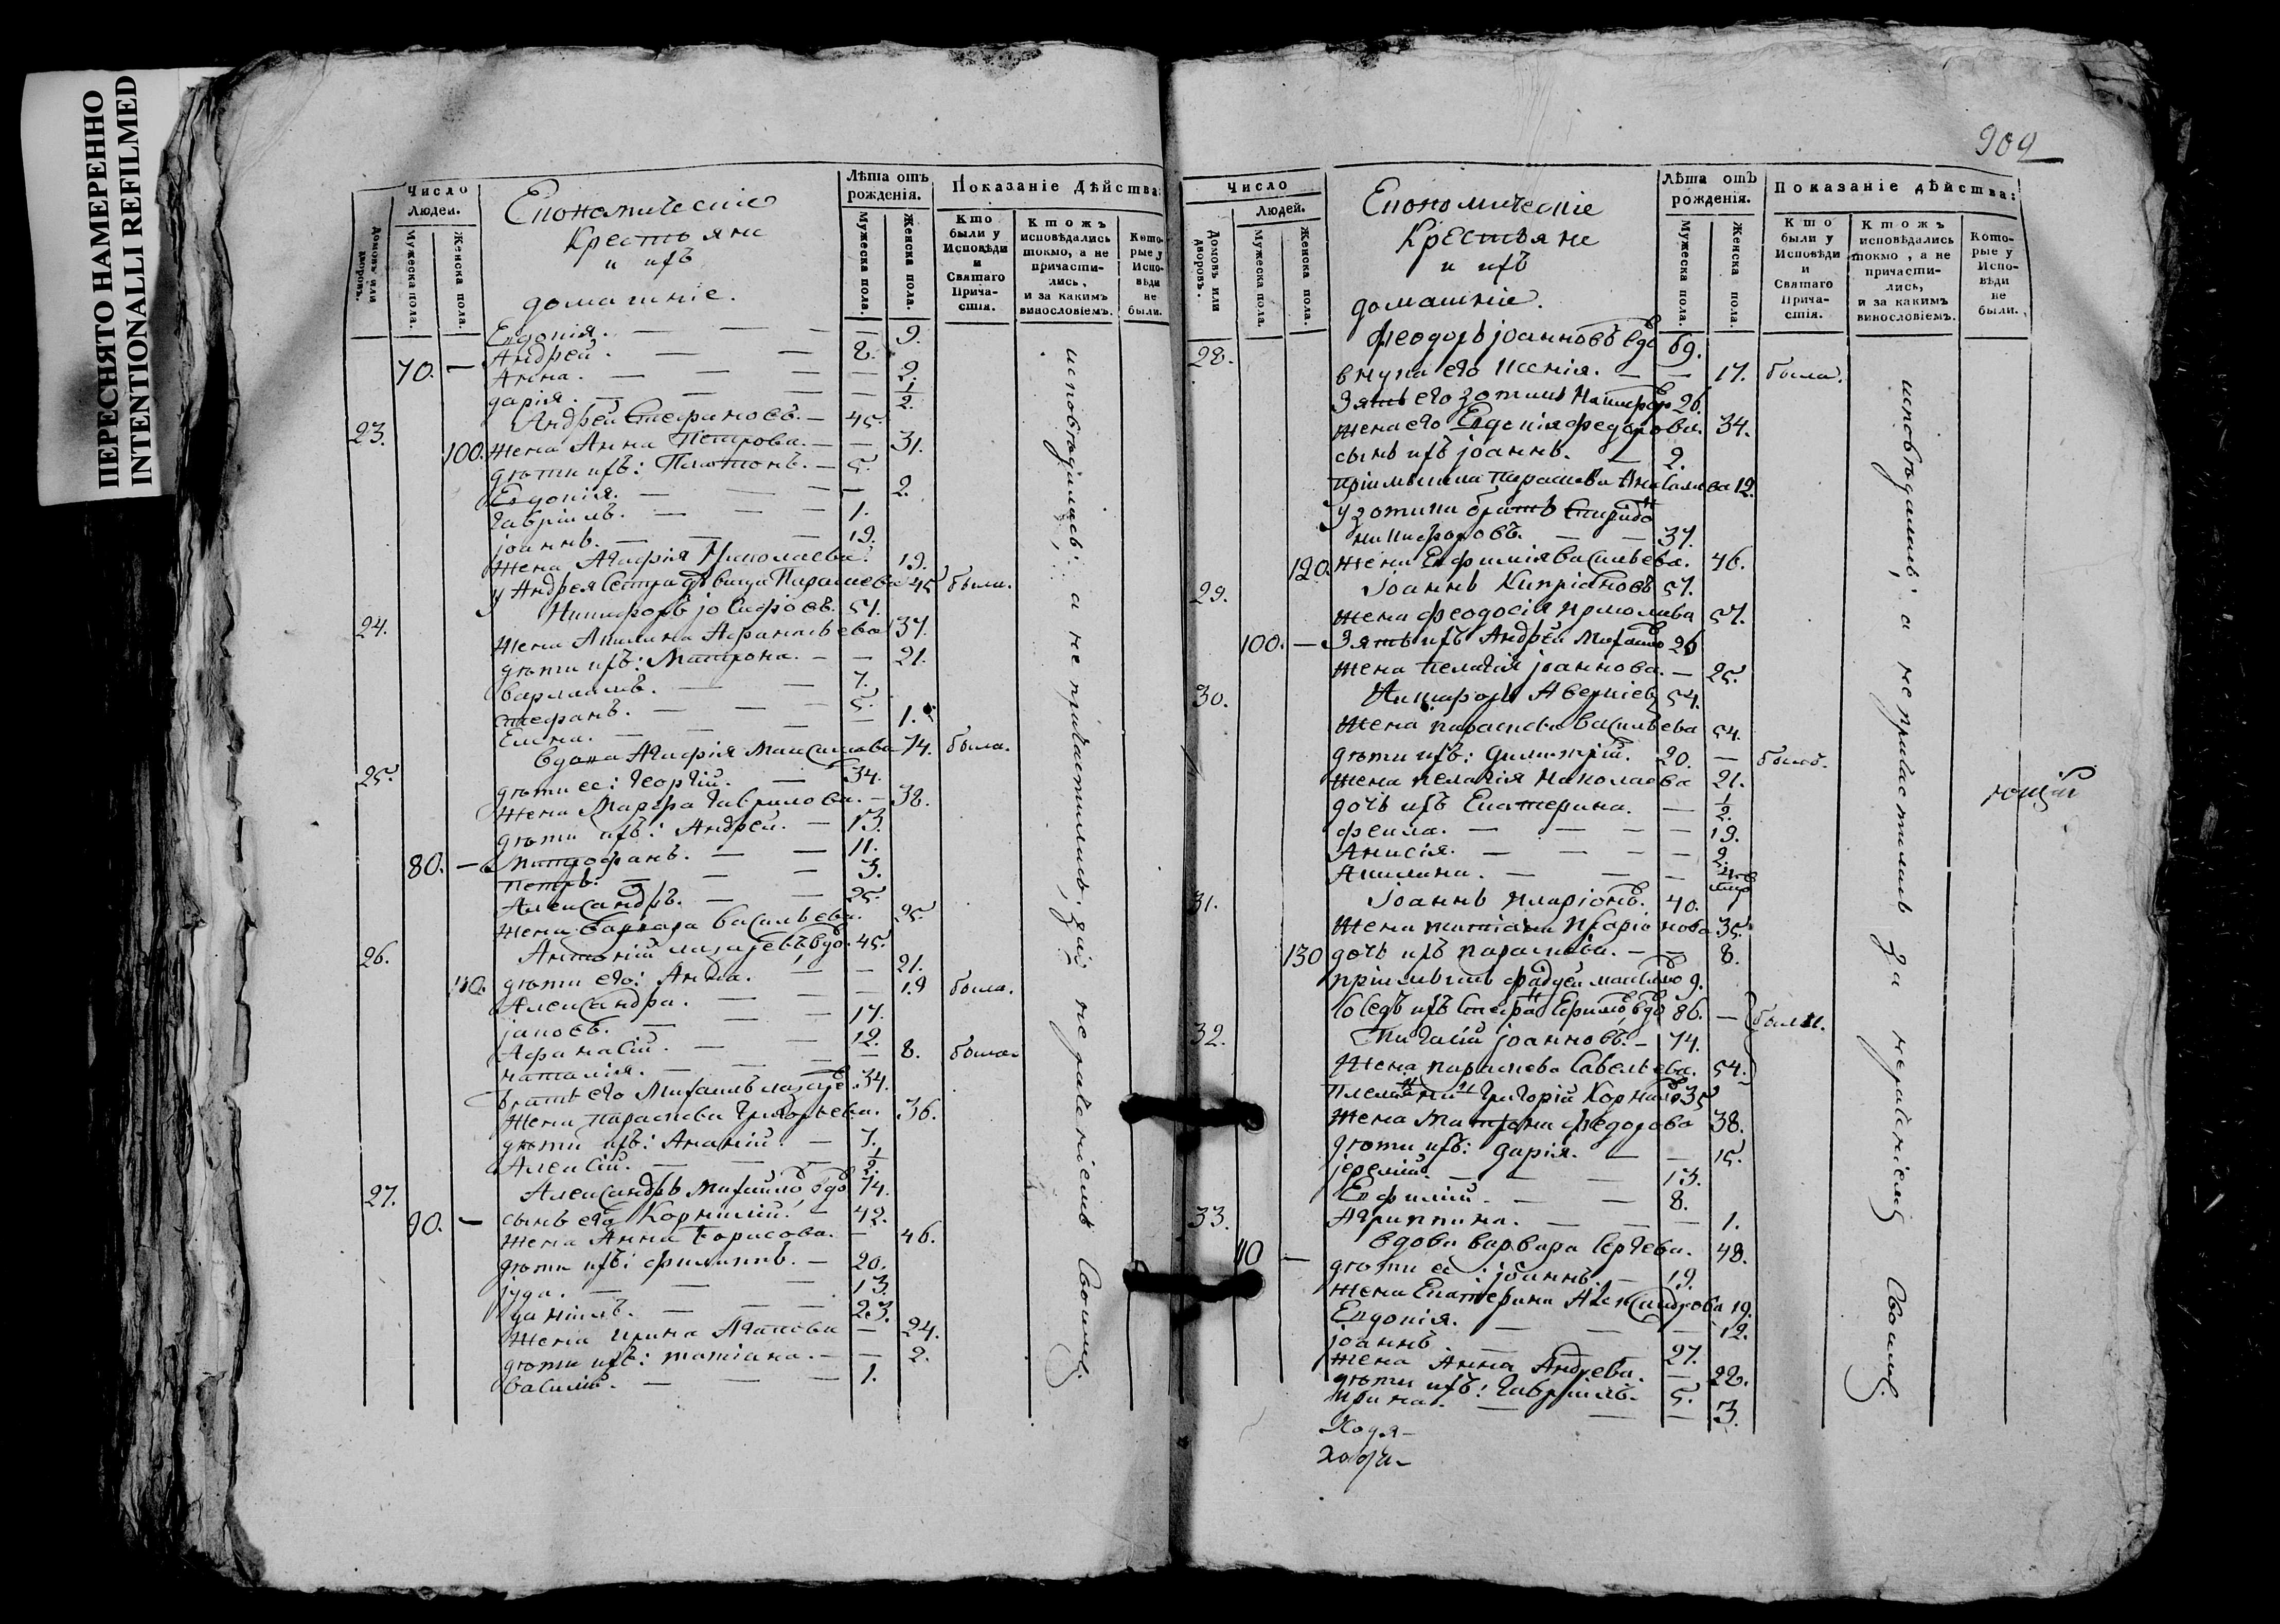 ПЕРЕСНЯТО НАМЕРЕННО
INTENTIONALLI REFILMED
Число
Людей.
Домовъ или дворовъ.
Мужеска пола.
Женска пола.
Економическіе
Крестьяне
и ихъ
домашніе.
Лѣта отъ рожденія.
Мужеска пола.
Женска пола.
Показаніе дѣйства:
Кто были у Исповѣди и Святаго Причастія.
Ктожъ исповѣдались токмо, а не причастились, и за какимъ винословіемъ.
Которые у Исповѣди не были.
Евдокія. — — — — 9.
70. — Андрей. — — 2.
Анна. — — — — 2.
Дарія. — — — — 1/2.
23. Андрей Стефановъ. — 45.
100. жена Анна Петрова. — — 31.
дѣти ихъ: Платонъ. — 5.
Евдокія. — — — — 2.
Гавріилъ. — — — 1.
Іоаннъ. — — — 19.
Жена Агафія Николаева. 19.
у Андрея Сестра дѣвица Параскева 45 была.
24. Никифоръ Іосифовъ. 57.
жена Акилина Афанасьева 37.
дѣти ихъ: Матрона. — — 21.
Варлаамъ. — — 7.
Стефанъ. — — 5.
Елена. — — — 1.
25. вдова Агафія Максимова 74. была.
дѣти ее: Георгій. — 34.
жена Марфа Гаврилова. — 38.
дѣти ихъ: Андрей. — 13.
80. — Митрофанъ. — — 11.
Петръ. — — — 3.
Александръ. — — 25.
жена Варвара Васильева. 25.
26. Антоній Лазаревъ вдо. 45.
110. дѣти его: Анна. — — 21.
Александра. — — — 19 была.
Іаковъ. — — — 17.
Афанасій. — — 12.
Наталія. — — — 8. была.
братъ его Михаилъ Лазаре. 34.
Жена Параскева Григорьева. 36.
дѣти ихъ: Ананій. — 7.
Алексій. — — — 1/2.
27. Александръ Михайло, вдо 74.
90. — сынъ его Корнилій. — 42.
жена Анна Борисова. — 46.
дѣти ихъ: Филиппъ. — 20.
Іуда. — — — 13.
Даніилъ. — — — 23.
Жена Ирина Агапова — 24.
дѣти ихъ: Татіана. — — 2.
Василій. — — — 1.
исповѣдались, а не причастились за нераченіемъ своимъ.
909
Число
Людей.
Домовъ или дворовъ.
Мужеска пола.
Женска пола.
Економическіе
Крестьяне
и ихъ
домашніе.
Лѣта отъ рожденія.
Мужеска пола.
Женска пола.
Показаніе дѣйства:
Кто были у Исповѣди и Святаго Причастія.
Ктожъ исповѣдались токмо, а не причастились, и за какимъ винословіемъ.
Которые у Исповѣди не были.
28. Феодоръ Іоанновъ вдо 69.
внука его Ксенія. — — 17. была.
Зять его Зотикъ Никифоро 26.
жена его Евдокія Федорова. 34.
сынъ ихъ Іоаннъ. — 2.
пріимышка Параскева 12.
у Зотика братъ Спиридо
Никифоровъ. — — 37.
120. жена Евфимія Васильева. 46.
29. Іоаннъ Кипріановъ 57.
жена Феодосія Ермолаева 57.
100. — Зять ихъ Андрей Михайло 26
жена Пелагія Іоаннова. — 25.
30. Никифоръ Аверкіев 54.
жена Параскева Васильева 54.
дѣти ихъ: Димитрій. 20. — былъ.
жена Пелагія Николаева 21.
дочь ихъ Екатерина. — 1/2.
Фекла. — — — — 19.
Анисія. — — — — 2.
Акилина. — — —
31. Іоаннъ Иларіоновъ. 40.
жена Татіана Иларіонова 35.
130 дочь ихъ Параскева. — — 8.
пріимышъ Фадей 9.
Соседъ ихъ Стефанъ Ефимовъ вдо 86. — были.
32. Іоанновъ. — 74.
жена Параскева Савельева. 54.
племянникъ Григорій Корнило 35
жена Матрона Федорова 38.
дѣти ихъ: Дарія. — — 15.
Іеремій. — — — 13.
Евфимій. — — 8.
Агриппина. — — — 1.
33. вдова Варвара Сергева. 48.
110 — дѣти ее: Іоаннъ. — 19.
жена Екатерина Александрова 19.
Евдокія. — — — 12.
Іоаннъ. — — 27.
жена Анна Андрева. — 22.
дѣти ихъ: Гавріилъ. 5.
Ирина. — — — 3.
исповѣдались, а не причастились за нераченіемъ своимъ.